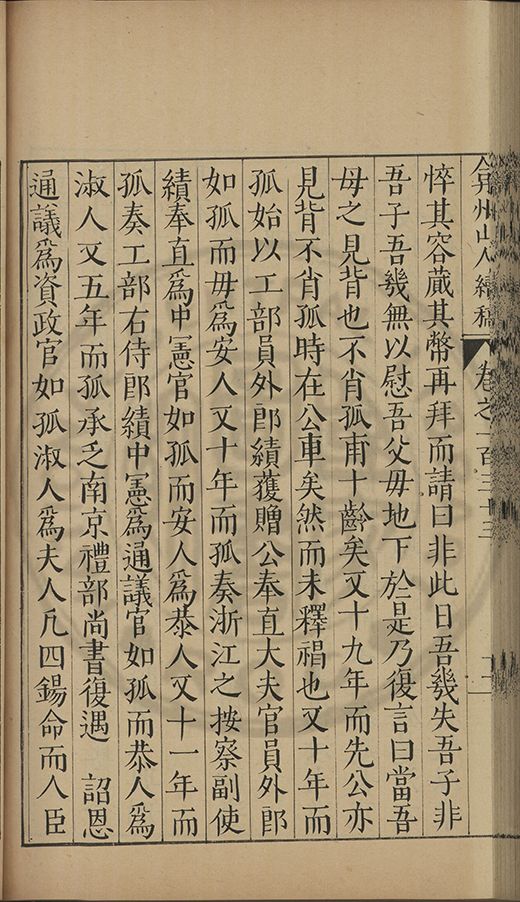 弇州山人續稿 卷之一百三十三
悴其容蕆其幣再拜而請曰非此日吾幾失吾子非
吾子吾幾無以慰吾父毋地下於是乃復言曰當吾
母之見背也不肖孤甫十齡矣又十九年而先公亦
見背不肖孤時在公車矣然而未釋褐也又十年而
孤始以工部員外郎績獲贈公奉直大夫官員外郎
如孤而毋爲安人又十年而孤奏浙江之按察副使
績奉直爲中憲官如孤而安人爲恭人又十一年而
孤奏工部右侍郎績中憲爲通議官如孤而恭人爲
淑人又五年而孤承乏南京禮部尚書復遇 詔恩
通議爲資政官如孤淑人爲夫人凡四錫命而人臣